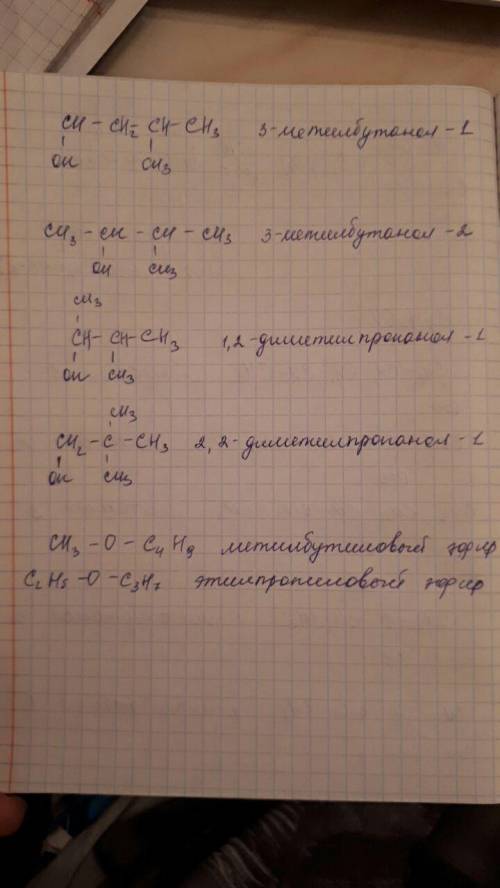 CH - CH2 CH - CH3 3-метилбутанол - 1
OH CH3
CH3 - CH - CH - CH3 3-метилбутанол - 2
OH CH3
CH3
CH - CH - CH3 1,2-диметилпропанол - 1
OH CH3
CH3
CH2 - C - CH3 2,2-диметилпропанол - 1
OH CH3
CH3 - O - C4H9 метилбутиловый эфир
C2H5 - O - C3H7 этилпропиловый эфир